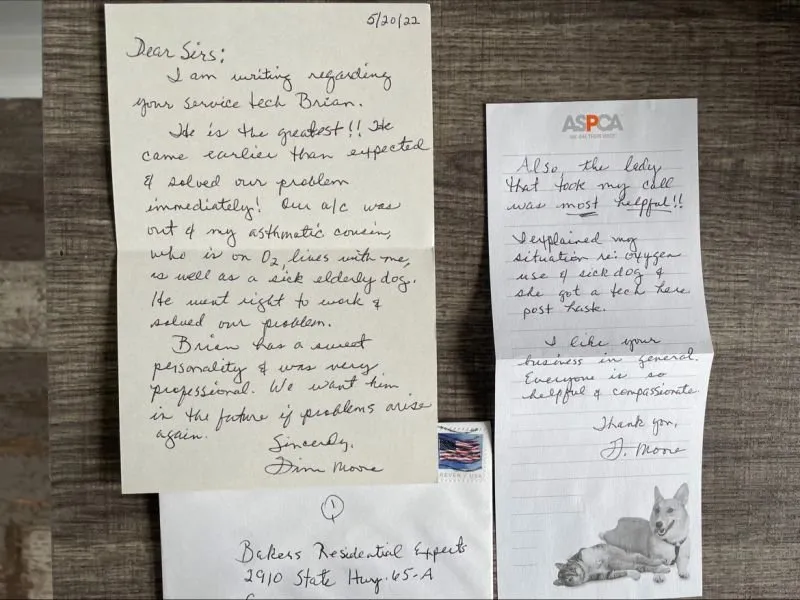 5/20/22
Dear Sirs:
I am writing regarding
your service tech Brian.
He is the greatest!! He
came earlier than expected
& solved our problem
immediately! Our a/c was
out & my asthmatic cousin,
who is on O2 lives with me,
as well as a sick elderly dog.
He went right to work &
solved our problem.
Brian has a sweet
personality & was very
professional. We want him
in the future if problems arise
again.
Sincerly,
Moore
ASPCA
WE ARE THEIR VOICE
Also, the lady
that took my call
was most helpful!!
I explained my
situation re: oxygen
use & sick dog &
she got a tech here
post hask.
I like your
business in general.
Everyone is so
helpful & compassionate.
Thank you,
Moore
1
Bakers Residential Experts
2910 State Hwy. 65-A